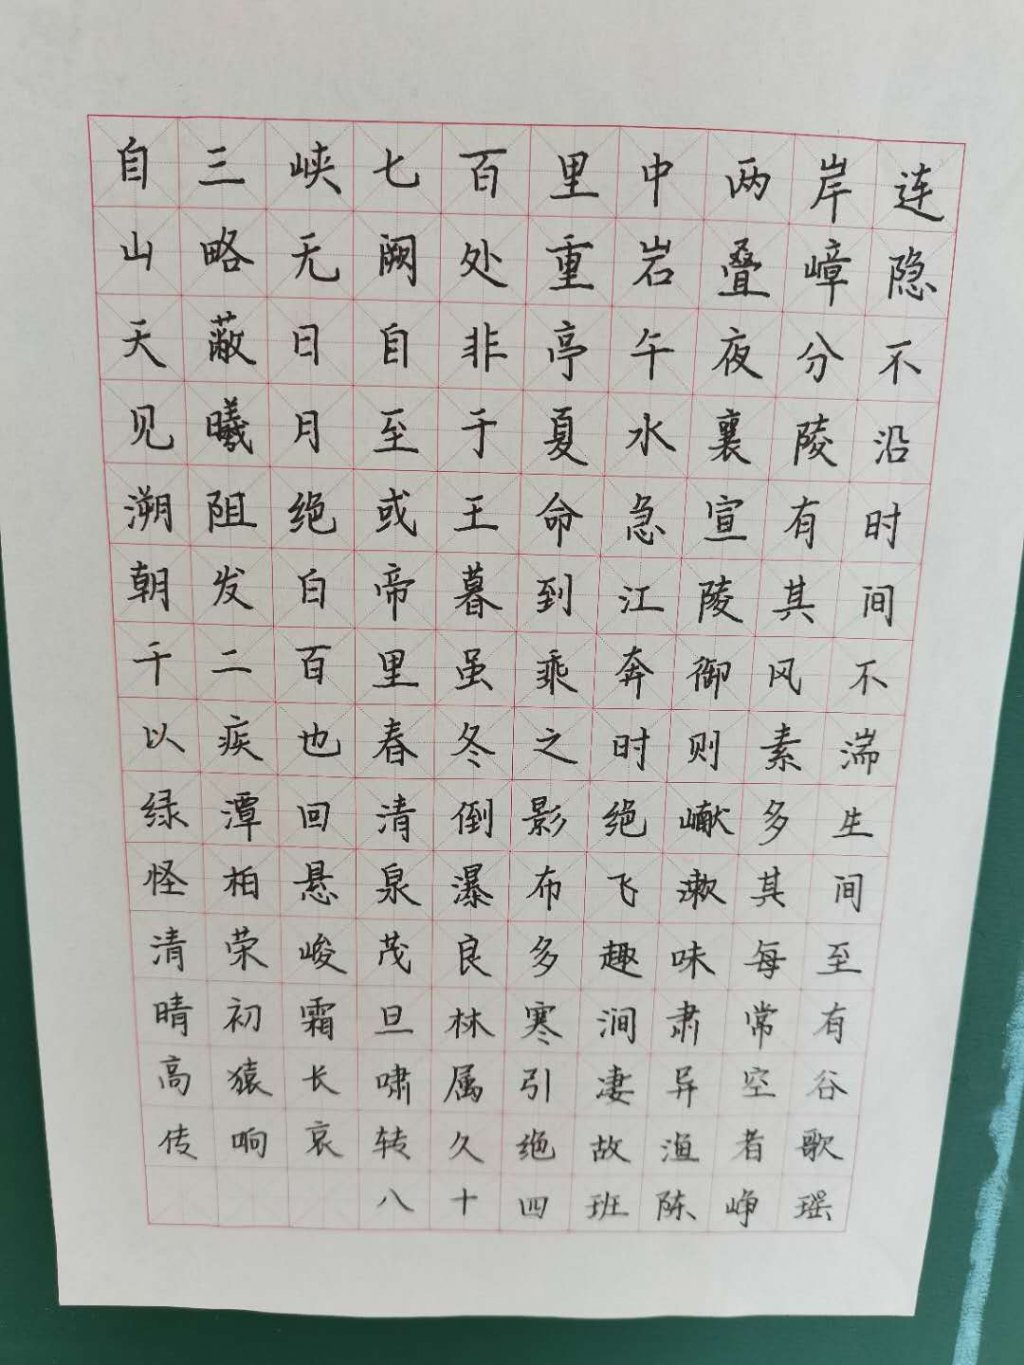 自三峡七百里中两岸连
山略无阙处重岩叠嶂隐
天蔽日自非亭午夜分不
见曦月至于夏水襄陵沿
溯阻绝或王命急宣有时
朝发白帝暮到江陵其间
千二百里虽乘奔御风不
以疾也春冬之时则素湍
绿潭回清倒影绝巘多生
怪柏悬泉瀑布飞漱其间
清荣峻茂良多趣味每至
晴初霜旦林寒涧肃常有
高猿长啸属引凄异空谷
传响哀转久绝故渔者歌
八十四班陈峥瑶